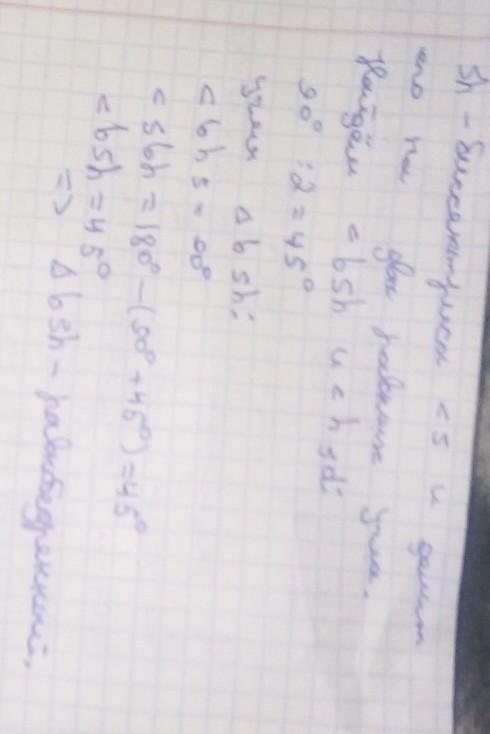 Sh - биссектриса < S и делит
его на два равных угла.
Найдём < bSh и < hSd:
90° : 2 = 45°
углы Δ bSh:
< bhS = 90°
< Sbh = 180° - (90° + 45°) = 45°
< bSh = 45°
=> Δ bSh - равнобедренный.